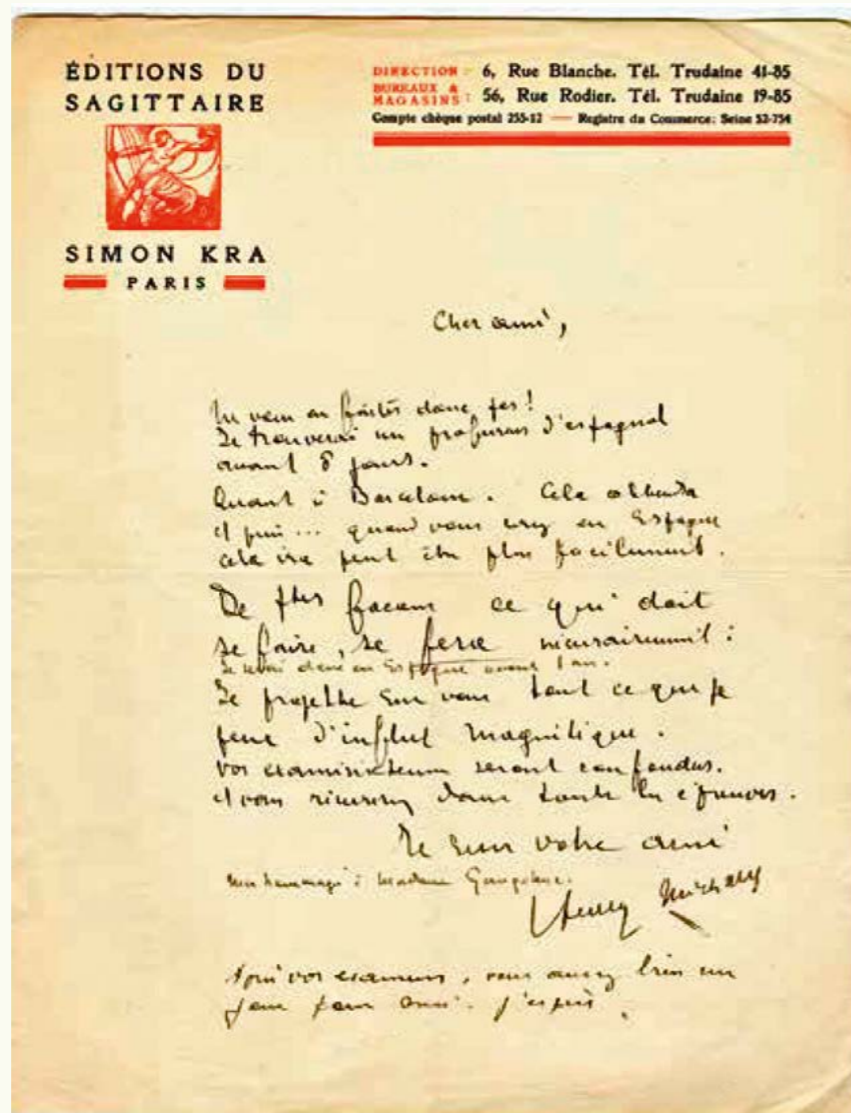 ÉDITIONS DU
SAGITTAIRE
SIMON KRA
PARIS
DIRECTION : 6, Rue Blanche. Tél. Trudaine 41-85
BUREAUX &
MAGASINS : 56, Rue Rodier. Tél. Trudaine 19-85
Compte chèque postal 255-12 — Registre du Commerce: Seine 52-754
Cher ami,
Ne vous en faites donc pas!
Je trouverai un professeur d'espagnol
avant 8 jours.
Quant à Barcelone. Cela attendra
et puis... quand vous serez en Espagne
cela ira peut être plus facilement.
De ttes façons ce qui doit
se faire, se fera nécessairement:
Je serai donc en Espagne avant 1 an.
Je projette sur vous tout ce que je
peux d'influx magnétique.
Vos examinateurs seront confondus.
et vous réussirez dans toutes les épreuves.
Je suis votre ami
mes hommages à Madame
Henry Michaux
Après vos examens, vous aurez bien un
jour pour j'espère.